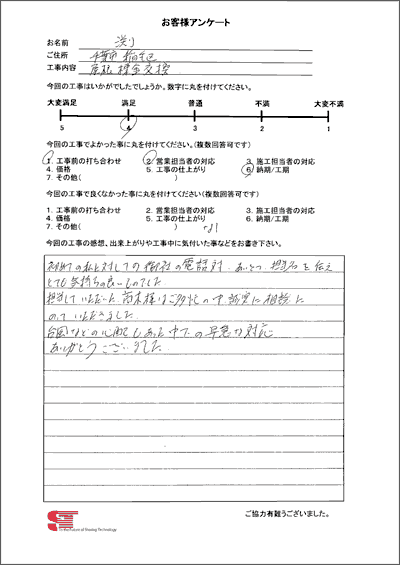 お客様アンケート
お名前
ご住所 千葉市 稲毛区
工事内容 庇板板金交換
今回の工事はいかがでしたでしょうか。数字に丸を付けてください。
大変満足 満足 普通 不満 大変不満
5 4 3 2 1
今回の工事でよかった事に丸を付けてください。(複数回答可です)
1. 工事前の打ち合わせ 2. 営業担当者の対応 3. 施工担当者の対応
4. 価格 5. 工事の仕上がり 6. 納期/工期
7. その他( )
今回の工事で良くなかった事に丸を付けてください(複数回答可です)
1. 工事前の打ち合わせ 2. 営業担当者の対応 3. 施工担当者の対応
4. 価格 5. 工事の仕上がり 6. 納期/工期
7. その他( ) なし
今回の工事の感想、出来上がりや工事中に気付いた事などをお書き下さい。
初めての私に対しての御社の電話対 あいさつ 担当名を伝え
とても気持ちの良いものでした
担当していただいた 高木様はご多忙の中、誠実に相談に
のっていただきました
台風などの心配もあった中での早急な対応
ありがとうございました
ご協力有難うございました。
To the Future of Sharing Technology